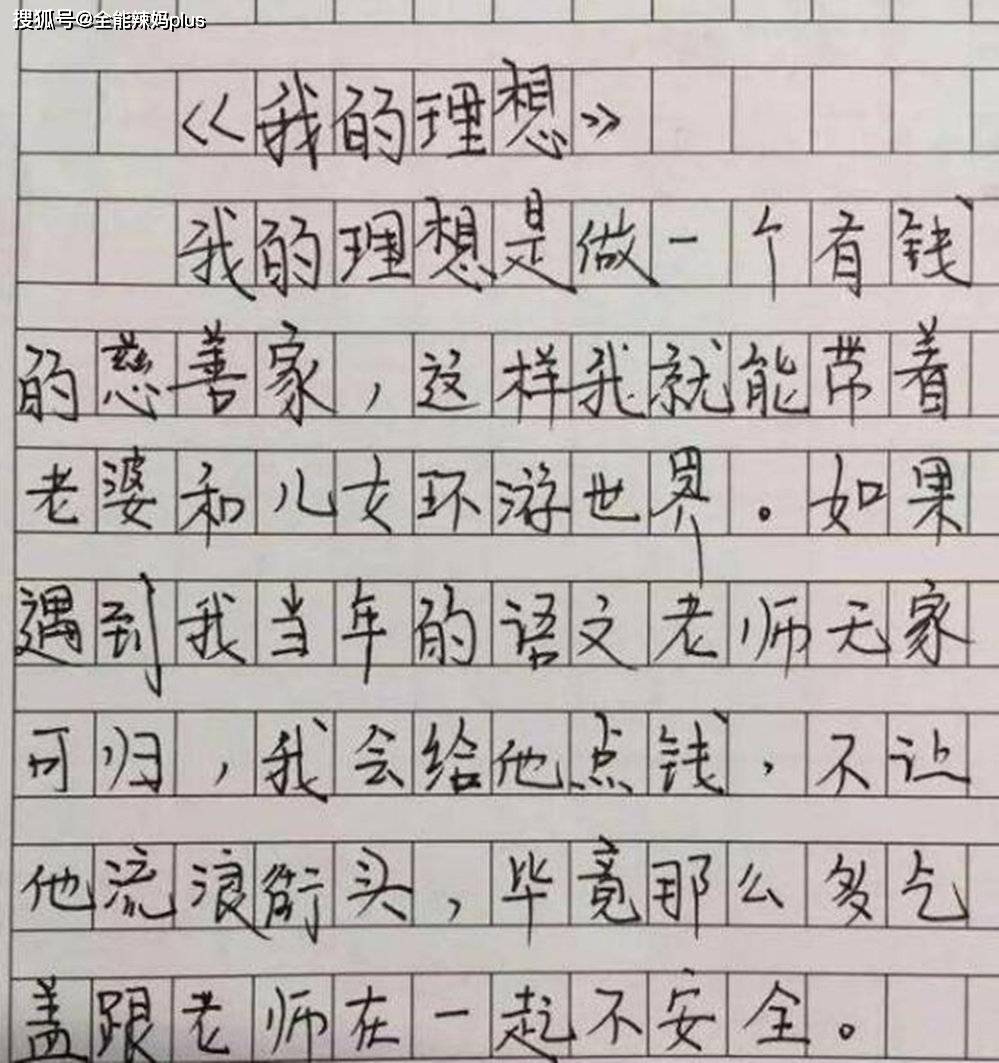 搜狐号@全能辣妈plus
《我的理想》
我的理想是做一个有钱
的慈善家,这样我就能带着
老婆和儿女环游世界。如果
遇到我当年的语文老师无家
可归,我会给他点钱,不让
他流浪街头,毕竟那么多乞
盖跟老师在一起不安全。